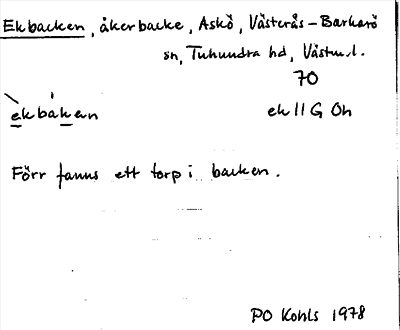 Ekbacken, åkerbacke, Askö, Västerås-Barkarö
sn, Tuhundra hd, Västm.l.
70
èkbákan ek 11 G Oh
Förr fanns ett torp i backen.
PO Kohls 1978